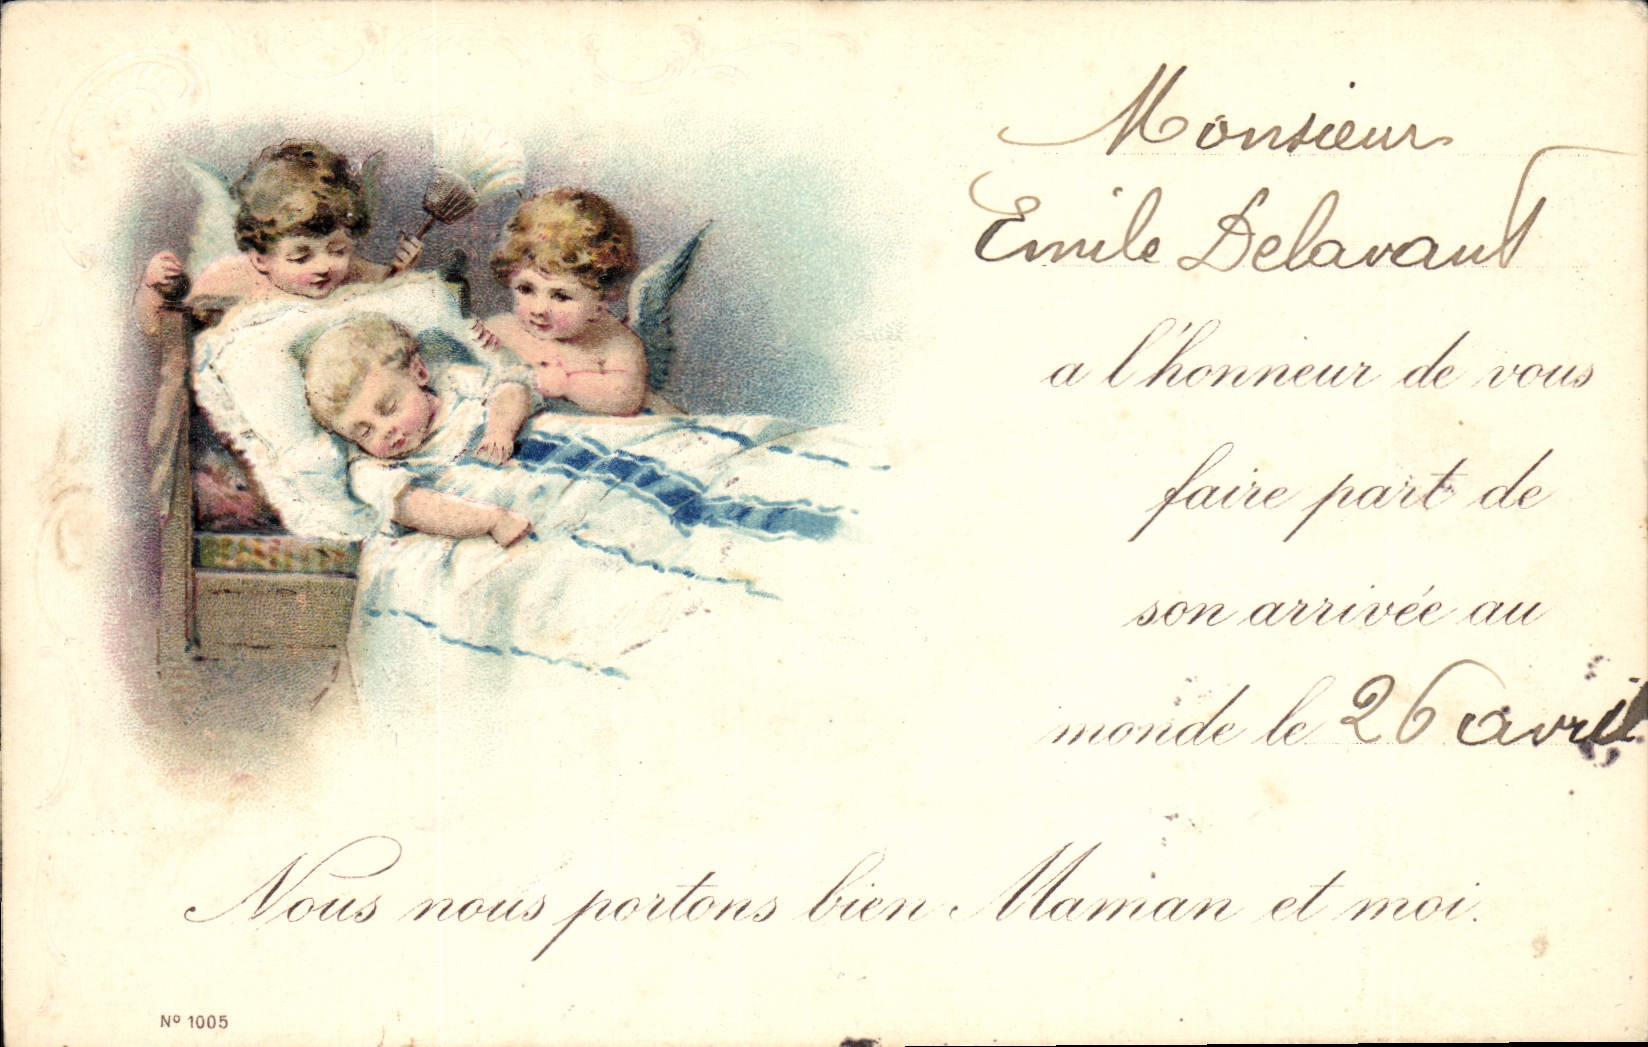 Monsieur
Emile Delavant
a l'honneur de vous
faire part de
son arrivée au
monde le 26 avril
Nous nous portons bien Maman et moi.
Nº 1005